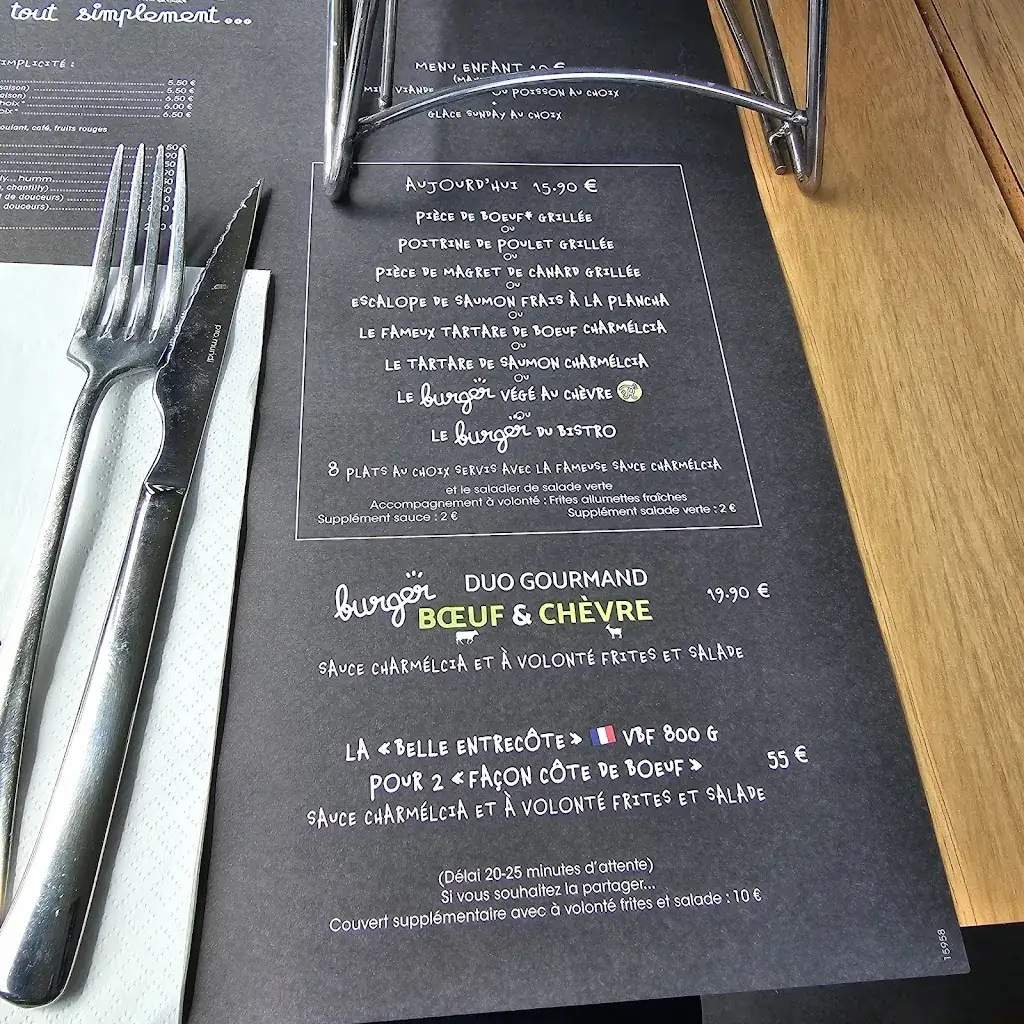 tout simplement...
SIMPLICITÉ :
5.50 €
5.50 €
6.50 €
6.00 €
6.50 €
café, fruits rouges
chantilly)
de douceurs)
douceurs)
MENU ENFANT
VIANDE OU POISSON AU CHOIX
GLACE SUNDAY AU CHOIX
AUJOURD'HUI 15.90 €
PIÈCE DE BOEUF* GRILLÉE
OU
POITRINE DE POULET GRILLÉE
OU
PIÈCE DE MAGRET DE CANARD GRILLÉE
OU
ESCALOPE DE SAUMON FRAIS À LA PLANCHA
OU
LE FAMEUX TARTARE DE BOEUF CHARMÉLCIA
OU
LE TARTARE DE SAUMON CHARMÉLCIA
OU
LE burger VÉGÉ AU CHÈVRE
OU
LE burger DU BISTRO
8 PLATS AU CHOIX SERVIS AVEC LA FAMEUSE SAUCE CHARMÉLCIA
et le saladier de salade verte
Accompagnement à volonté : Frites allumettes fraîches
Supplément sauce : 2 € Supplément salade verte : 2 €
burger DUO GOURMAND
BŒUF & CHÈVRE 19.90 €
SAUCE CHARMÉLCIA ET À VOLONTÉ FRITES ET SALADE
LA « BELLE ENTRECÔTE » VBF 800 G
POUR 2 « FAÇON CÔTE DE BOEUF » 55 €
SAUCE CHARMÉLCIA ET À VOLONTÉ FRITES ET SALADE
(Délai 20-25 minutes d'attente)
Si vous souhaitez la partager...
Couvert supplémentaire avec à volonté frites et salade : 10 €
15958
pro.mundi